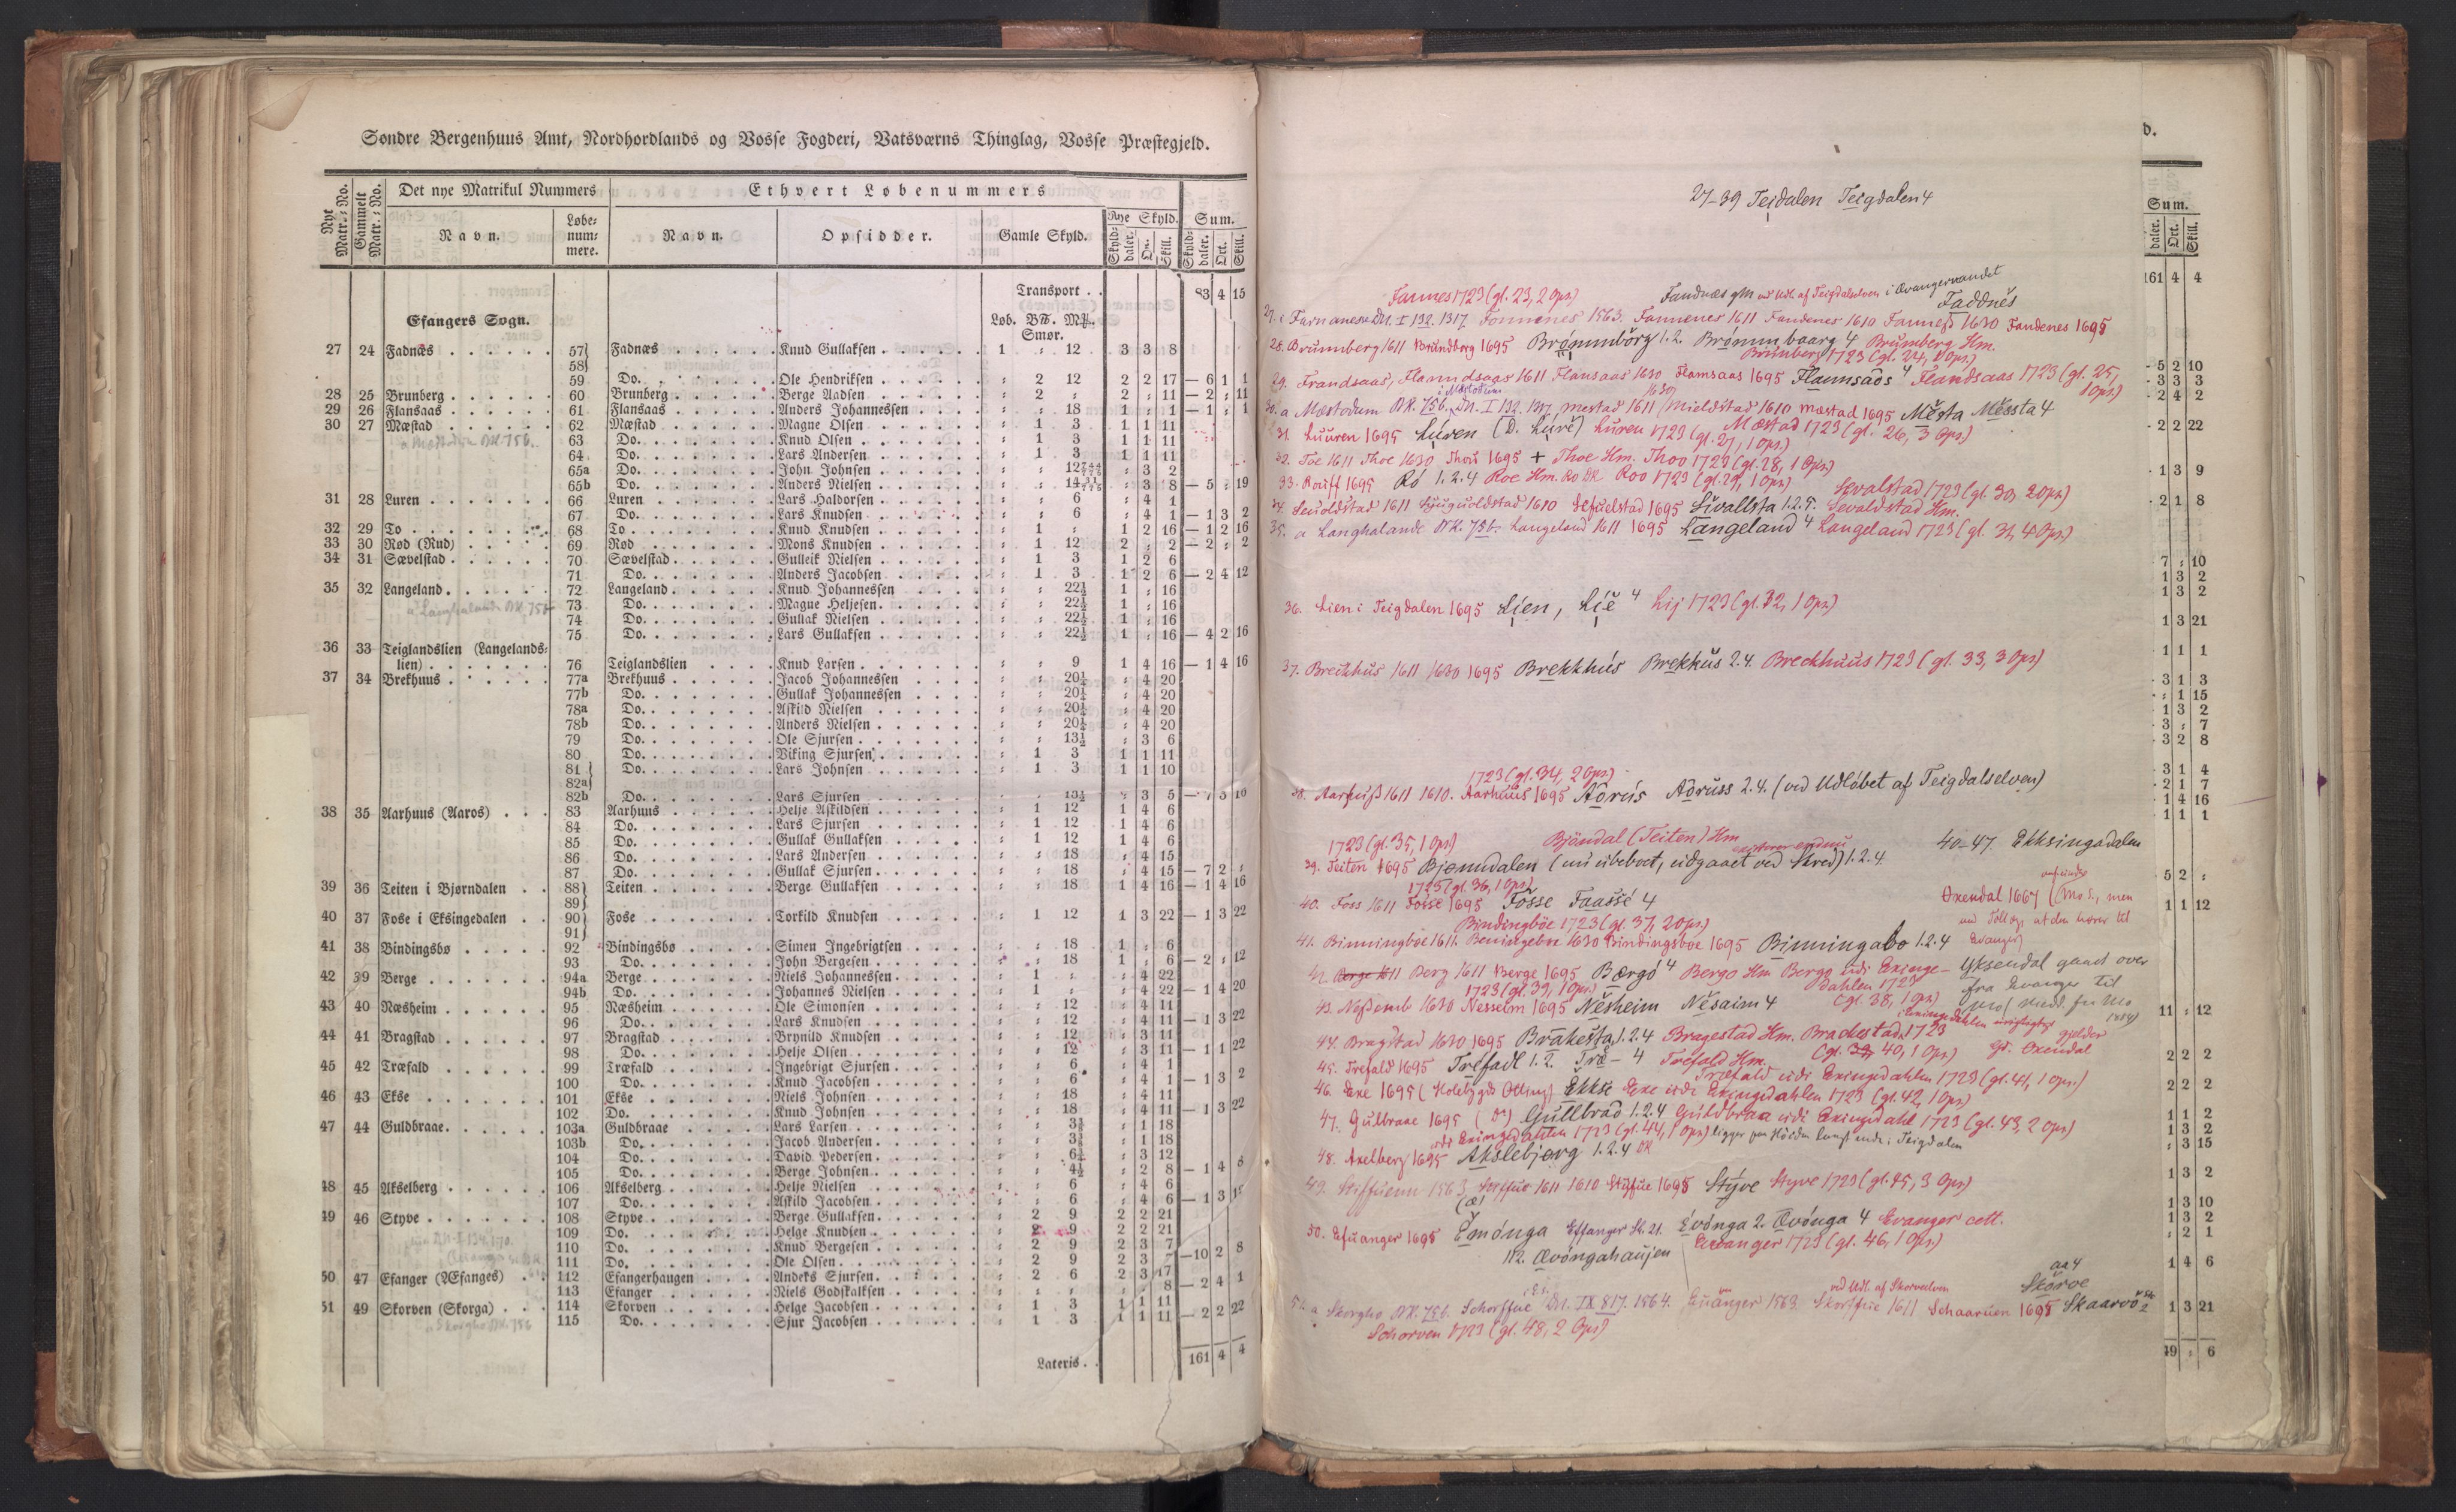 Søndre Bergenhuus Amt, Nordhordlands og Vosse Fogderi, Vatsværns Thinglag, Vosse Præstegjeld.
Nye Matr.-No. Gammelt Matr.-No. Det nye Matrikul Nummers Ethvert Løbenummers
Navn. Løbenummere. Navn. Opsidder. Gamle Skyld. Nye Skyld. Sum.
Skylddaler. Ort. Skill. Skylddaler. Ort. Skill.
Transport . . 83 4 15
Efangers Sogn. Løb. BƁ. Mkr. Smør.
27 24 Fadnæs 57 Fadnæs Knud Gullaksen 1 : 12 3 3 8
58
59 Do. Ole Hendriksen : 2 12 2 2 17 — 6 1 1
28 25 Brunberg 60 Brunberg Berge Aadsen : 2 : 2 : 11 — 2 : 11
29 26 Flansaas 61 Flansaas Anders Johannessen : : 18 1 : 1 — 1 : 1
30 27 Mæstad 62 Mæstad Magne Olsen : 1 3 1 1 11
a Mæstodum BK. 756. 63 Do. Knud Olsen : 1 3 1 1 11
64 Do. Lars Andersen : 1 3 1 1 11
65a Do. John Johnsen : 3 2
65b Do. Anders Nielsen : 3 8 — 5 : 19
31 28 Luren 66 Luren Lars Haldorsen : : 6 : 4 1
67 Do. Lars Knudsen : : 6 : 4 1 — 1 3 2
32 29 To 68 To Knud Knudsen : 1 : 1 2 16 — 1 2 16
33 30 Rød (Rud) 69 Rød Mons Knudsen : 1 12 2 : 2 — 2 : 2
34 31 Sævelstad 70 Sævelstad Gulleik Nielsen : 1 3 1 2 6
71 Do. Anders Jacobsen : 1 3 1 2 6 — 2 4 12
35 32 Langeland 72 Langeland Knud Johannessen : : 22½ 1 : 16
a Langhalande BK. 756 73 Do. Magne Heljesen : : 22½ 1 : 16
74 Do. Gullak Nielsen : : 22½ 1 : 16
75 Do. Lars Gullaksen : : 22½ 1 : 16 — 4 2 16
36 33 Teiglandslien (Langelands-
lien) 76 Teiglandslien Knud Larsen : : 9 1 4 16 — 1 4 16
37 34 Brekhuus 77a Brekhuus Jacob Johannessen : : 20¼ : 4 20
77b Do. Gullak Johannessen : : 20¼ : 4 20
78a Do. Askild Nielsen : : 20¼ : 4 20
78b Do. Anders Nielsen : : 20¼ : 4 20
79 Do. Ole Sjursen : : 13½ : 3 6
80 Do. Viking Sjursen : 1 3 1 1 11
81 Do. Lars Johnsen : 1 3 1 1 10
82a
82b Do. Lars Sjursen : : 13½ : 3 5
38 35 Aarhuus (Aaros) 83 Aarhuus Helje Askildsen : 1 12 1 4 6
84 Do. Lars Sjursen : 1 12 1 4 6
85 Do. Gullak Gullaksen : 1 12 1 4 6
86 Do. Lars Andersen : : 18 : 4 15
87 Do. Gullak Sjursen : : 18 : 4 15 — 7 2 :
39 36 Teiten i Bjørndalen 88 Teiten Berge Gullaksen : : 18 1 4 16 — 1 4 16
89
40 37 Fose i Eksingedalen 90 Fose Torkild Knudsen : 1 12 1 3 22 — 1 3 22
91
41 38 Bindingsbø 92 Bindingsbø Simen Ingebrigtsen : : 18 1 : 6
93 Do. John Bergesen : : 18 1 : 6 — 2 : 12
42 39 Berge 94a Berge Niels Johannessen : 1 : : 4 22
94b Do. Johannes Nielsen : 1 : : 4 22 — 1 4 20
43 40 Næsheim 95 Næsheim Ole Simonsen : : 12 : 4 11
96 Do. Lars Knudsen : : 12 : 4 11 — 1 3 22
44 41 Bragstad 97 Bragstad Brynild Knudsen : : 12 : 3 11
98 Do. Helje Olsen : : 12 : 3 11 — 1 1 22
45 42 Træfald 99 Træfald Ingebrigt Sjursen : : 6 : 4 1
100 Do. Knud Jacobsen : : 6 : 4 1 — 1 3 2
46 43 Ekse 101 Ekse Niels Johnsen : : 18 : 4 11
102 Do. Knud Johnsen : : 18 : 4 11 — 1 3 22
47 44 Guldbraae 103a Guldbraae Lars Larsen : 1 18
103b Do. Jacob Andersen : 1 18
104 Do. David Pedersen : 3 12
105 Do. Berge Johnsen : : 4½ : 2 8 — 1 4 8
48 45 Akselberg 106 Akselberg Helje Nielsen : : 6 : 4 6
107 Do. Askild Jacobsen : : 6 : 4 6 — 1 3
49 46 Styve 108 Styve Berge Gullaksen : 2 9 2 2 21
109 Do. Helge Knudsen : 2 9 2 2 21
110 Do. Knud Bergesen : 2 9 2 3 7
111 Do. Ole Olsen : 2 9 2 3 7 — 10 2 8
50 47 Efanger (Æfanges) 112 Efangerhaugen Anders Sjursen : 2 6 2 3 17
113 Efanger Niels Godskalksen : : : : : 8 — 2 4 1
51 49 Skorven (Skorga) 114 Skorven Helge Jacobsen : 1 3 1 1 11
a Skorgho BK. 756 115 Do. Sjur Jacobsen : 1 3 1 1 11 — 2 2 22
Lateris . . 161 4 4
27–39 Teidalen Teigdalen 4
Fannes 1723 (gl. 23, 2 Ops.) Fandnæs gM ved Udl. af Teigdalselven i Evangervandet
Faddnes
27. i Farnanese DN. I 132. 1317. Fonnenes 1563. Fannenes 1611 Fandenes 1610 Fanness 1630 Fandenes 1695
28. Brunnberg 1611 Brundberg 1695 Brommborg 1.2. Brommbaarg 4 Brumberg Hm.
Brunberg 1723 (gl. 24, 1 Ops.)
29. Frandsaas, Flanndsaas 1611 Flansaas 1630 Flamsaas 1695 Flaunsaas 4 Flandsaas 1723 (gl. 25, 1 Ops.)
30. a Mæstodum BK. 756. DN. I 132. 1317. Mestad 1611 Mieldstad 1610 Mæstad 1695 Mesta Messta 4
Mæstad 1723 (gl. 26, 3 Ops.)
31. Luuren 1695 Luren (D. Lure) Luren 1723 (gl. 27, 1 Ops.)
32. Toe 1611 Thoe 1630 Thou 1695 + Thoe Hm. Thoo 1723 (gl. 28, 1 Ops.)
33. Rouff 1695 Ró 1.2.4 Roe Hm. Roo 1723 (gl. 29, 1 Ops.) Sevalstad 1723 (gl. 30, 2 Ops.)
34. Seuoldstad 1611 Sefuelstad 1695 Sivallsta 1.2.5. Sevaldstad Hm.
35. a Langhalande BK. 756. Langeland 1611 1695 Langeland 4 Langeland 1723 (gl. 31, 4 Ops.)
36. Lien i Teigdalen 1695 Lien, Lie 4 Lij 1723 (gl. 32, 1 Ops.)
37. Brechhus 1611 1630 1695 Brekkhús Brekkus 2.4. Brechhuus 1723 (gl. 33, 3 Ops.)
1723 (gl. 34, 2 Ops.)
38. Aarhuss 1611 1610. Aarhuus 1695 Aorús Aoruss 2.4. (ved Udløbet af Teigdalselven)
1723 (gl. 35, 1 Ops.) Bjöndal (Teiten) Hm 40–47. Ekksingadalen
39. Teiten 1695 Bjønndalen (nu ubeboet, udgaaet ved Skred) 1.2.4
1723 (gl. 36, 1 Ops.)
40. Foss 1611 Fosse 1695 Fosse Faasse 4 Oxendal 1667 (Mo S., men
Bindingböe 1723 (gl. 37, 2 Ops.)
41. Binningboe 1611. 1630 Bindingsboe 1695 Binningabo 1.2.4 Evanger)
42. Berg 1611 Berge 1695 Bærgó 4 Berge Hm Berge udi Exinge-
Dahlen 1723 (gl. 38, 1 Ops.) Yksendal gaaet over
fra Evanger til
1723 (gl. 39, 1 Ops.)
43. 1630 Nesseim 1695 Nesheim Nesaim 4
44. Bragstad 1630 1695 Brakesta 1.2.4 Bragestad Hm. Brachestad 1723
(gl. 40, 1 Ops.) gjelder Gd. Oxendal
45. Trefald 1695 Trefadl 1.2. Træ– 4 Trefald Hm.
Træfald udi Exingedahlen 1723 (gl. 41, 1 Ops.)
46. Exe 1695 Ekkse Exe udi Exingedahlen 1723 (gl. 42, 1 Ops.)
47. Gulbraae 1695 Gullbrao 1.2.4 Guldbraa udi Exingedahl 1723 (gl. 43, 2 Ops.)
udi Exingedahlen 1723 (gl. 44, 1 Ops.) ligger paa Höiden længst inde i Teigdalen
48. Axelberg 1695 Akslebjørg 1.2.4
49. 1563 1611 1610 1695 Styve Styve 1723 (gl. 45, 3 Ops.)
50. Efuanger 1695 Emónga Effanger St. 21. Evónga 2. Ævónga 4 Evanger cott.
112. Ævóngahaujen Evanger 1723 (gl. 46, 1 Ops.)
ved Udl. af Skorveelven Skorve
51. a Skorgho BK. 756. Schorffue DN. IX 817. 1564. 1563. 1611 Schaaruen 1695 Skaarvo
Schorven 1723 (gl. 48, 2 Ops.)
d.
Sum.
daler. Ort. Skill.
161 4 4
5 2 10
3 3 3
2 4 2
2 2 22
1 3 9
2 1 8
7 : 10
1 3 2
1 3 2
1 3 21
1 1 1
3 1 3
: 1 15
1 3 2
3 : 7
3 2 8
3 1 4
2 1 7
1 4 16
1 1 1
5 2 :
1 1 12
11 : 12
2 2 2
2 2 2
1 1 2
1 3 2
: 3 15
1 3 2
1 3 10
1 3 2
: 2 1
1 4 6
1 3 21
49 : 6